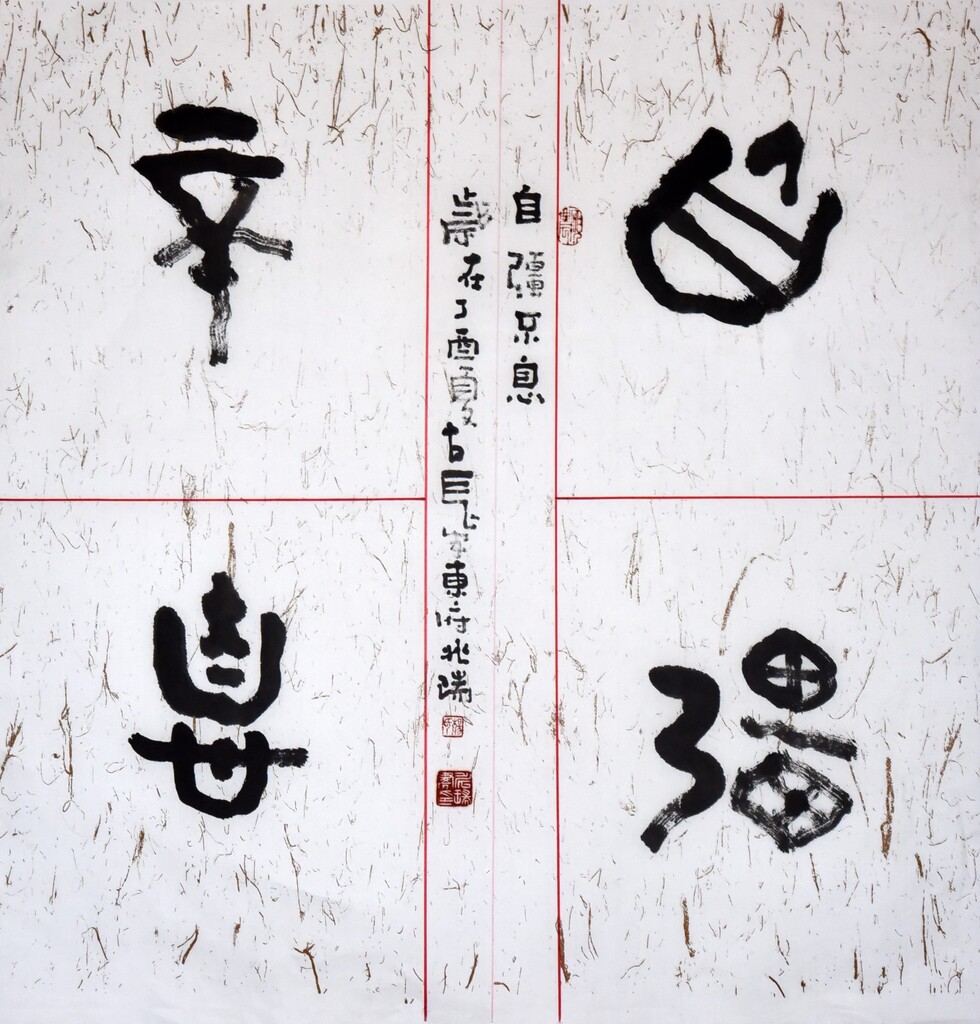 自
彊
不
息
自彊不息
歲在丁酉夏古長安東府北瑞